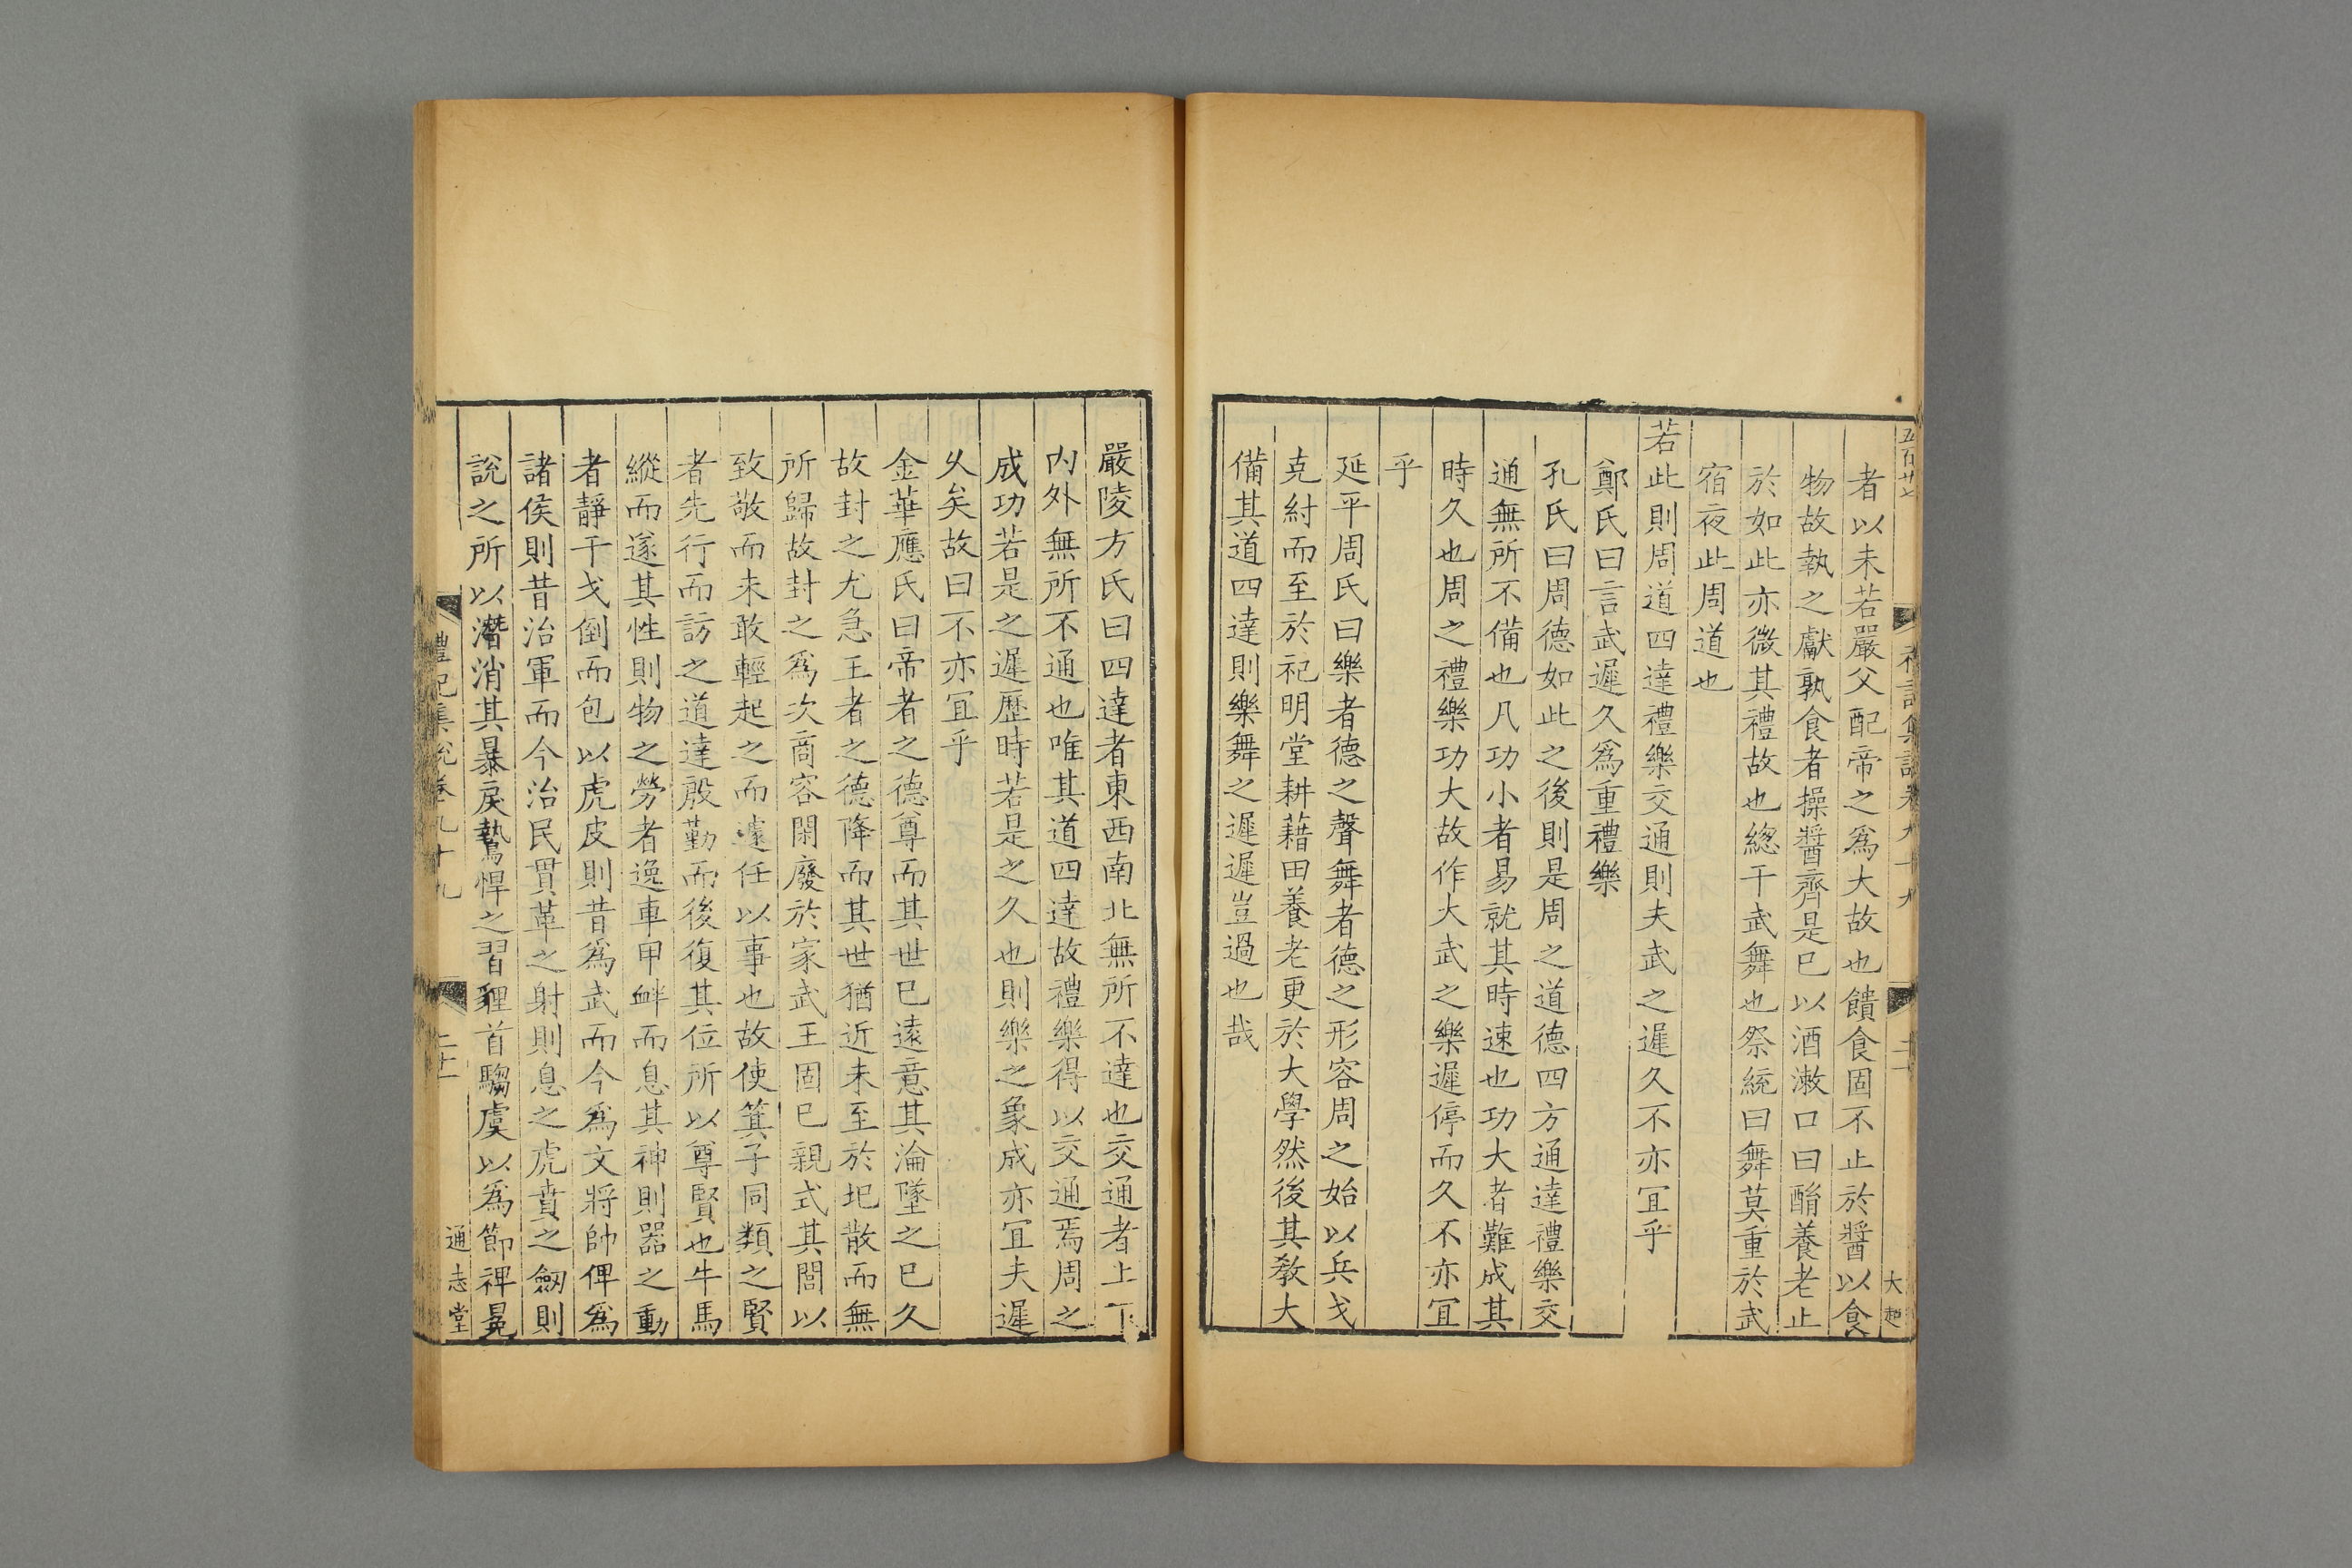 五百廿七
者以未若嚴父配帝之爲大故也饋食固不止於醬以食
物故執之獻孰食者操醬齊是已以酒漱口曰酳養老止
於如此亦微其禮故也緫干武舞也祭統曰舞莫重於武
宿夜此周道也
若此則周道四達禮樂交通則夫武之遲久不亦冝乎
鄭氏曰言武遲久爲重禮樂
孔氏曰周德如此之後則是周之道德四方通達禮樂交
通無所不備也凡功小者易就其時速也功大者難成其
時久也周之禮樂功大故作大武之樂遲停而久不亦冝
乎
延平周氏曰樂者德之聲舞者德之形容周之始以兵戈
克紂而至於祀明堂耕藉田養老更於大學然後其敎大
備其道四達則樂舞之遲遲豈過也哉
嚴陵方氏曰四達者東西南北無所不達也交通者上下
内外無所不通也唯其道四達故禮樂得以交通焉周之
成功若是之遲歷時若是之久也則樂之象成亦冝夫遲
久矣故曰不亦冝乎
金華應氏曰帝者之德尊而其世已遠意其淪墜之已久
故封之尤急王者之德降而其世猶近未至於圯散而無
所歸故封之爲次商容閑廢於家武王固已親式其閭以
致敬而未敢輕起之而遽任以事也故使箕子同類之賢
者先行而訪之道達殷勤而後復其位所以尊賢也牛馬
縱而遂其性則物之勞者逸車甲衅而息其神則器之動
者靜干戈倒而包以虎皮則昔爲武而今爲文將帥俾爲
諸侯則昔治軍而今治民貫革之射則息之虎賁之劔則
說之所以潛消其暴戾鷙悍之習貍首騶虞以爲節裨冕
禮記集說卷九十九
二十一
通志堂